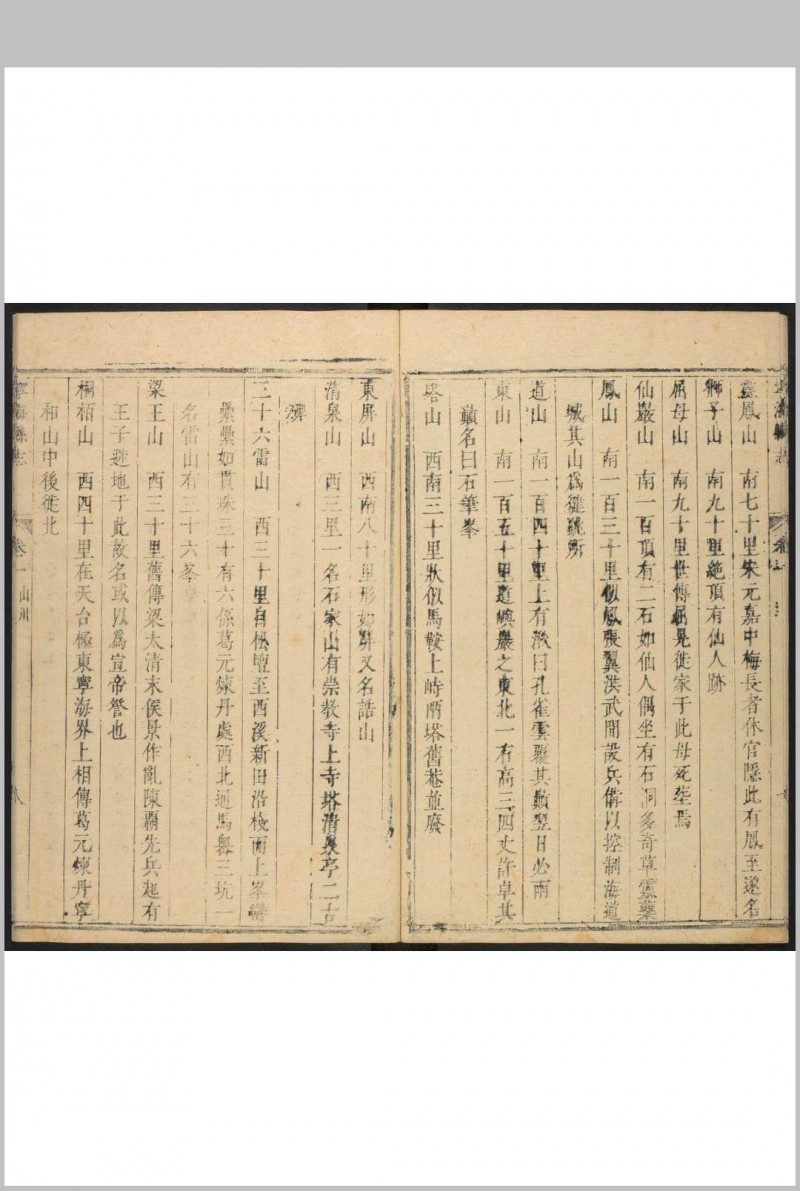 鳳山　南七十里宋元嘉中梅長者休官隱此有鳳至遂名
獅子山　南九十里絶頂有仙人跡
屈母山　南九十里世傳屈晃徙家于此母死塟焉
仙巖山　南一百頂有二石如仙人偶坐有石洞多奇草靈藥
鳳山　南一百三十里似鳳張翼洪武間設兵備以控制海道
城其山爲
道山　南一百四十里上有漈曰孔雀雲覆其巔翌日必雨
東山　南一百五十里道嶼巖之東北一石高三四丈許卓其
巔名曰石筆峯
塔山　西南三十里狀似馬鞍上峙兩塔舊菴並廢
東屏山　西南八十里形如屏又名誥山
清泉山　西三里一名石家山有崇教寺上寺塔清泉亭二古
三十六雷山　西三十里自松壇至西溪新田沿棧而上峯巒
纍纍如貫珠三十有六係葛元煉丹處西北通馬嶴三坑一
名雷山有三十六峯
梁王山　西三十里舊傳梁太清末侯景作亂陳霸先兵起有
王子避地于此故名或以爲宣帝詧也
桐栢山　西四十里在天台極東寧海界上相傳葛元煉丹寧
和山中後徙北
寧海縣志　卷一　山川　八